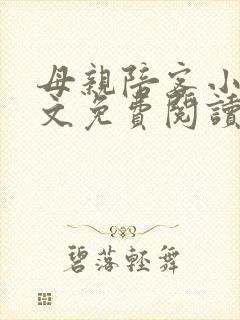 母親陪客小
文免費閱讀
碧落輕舞